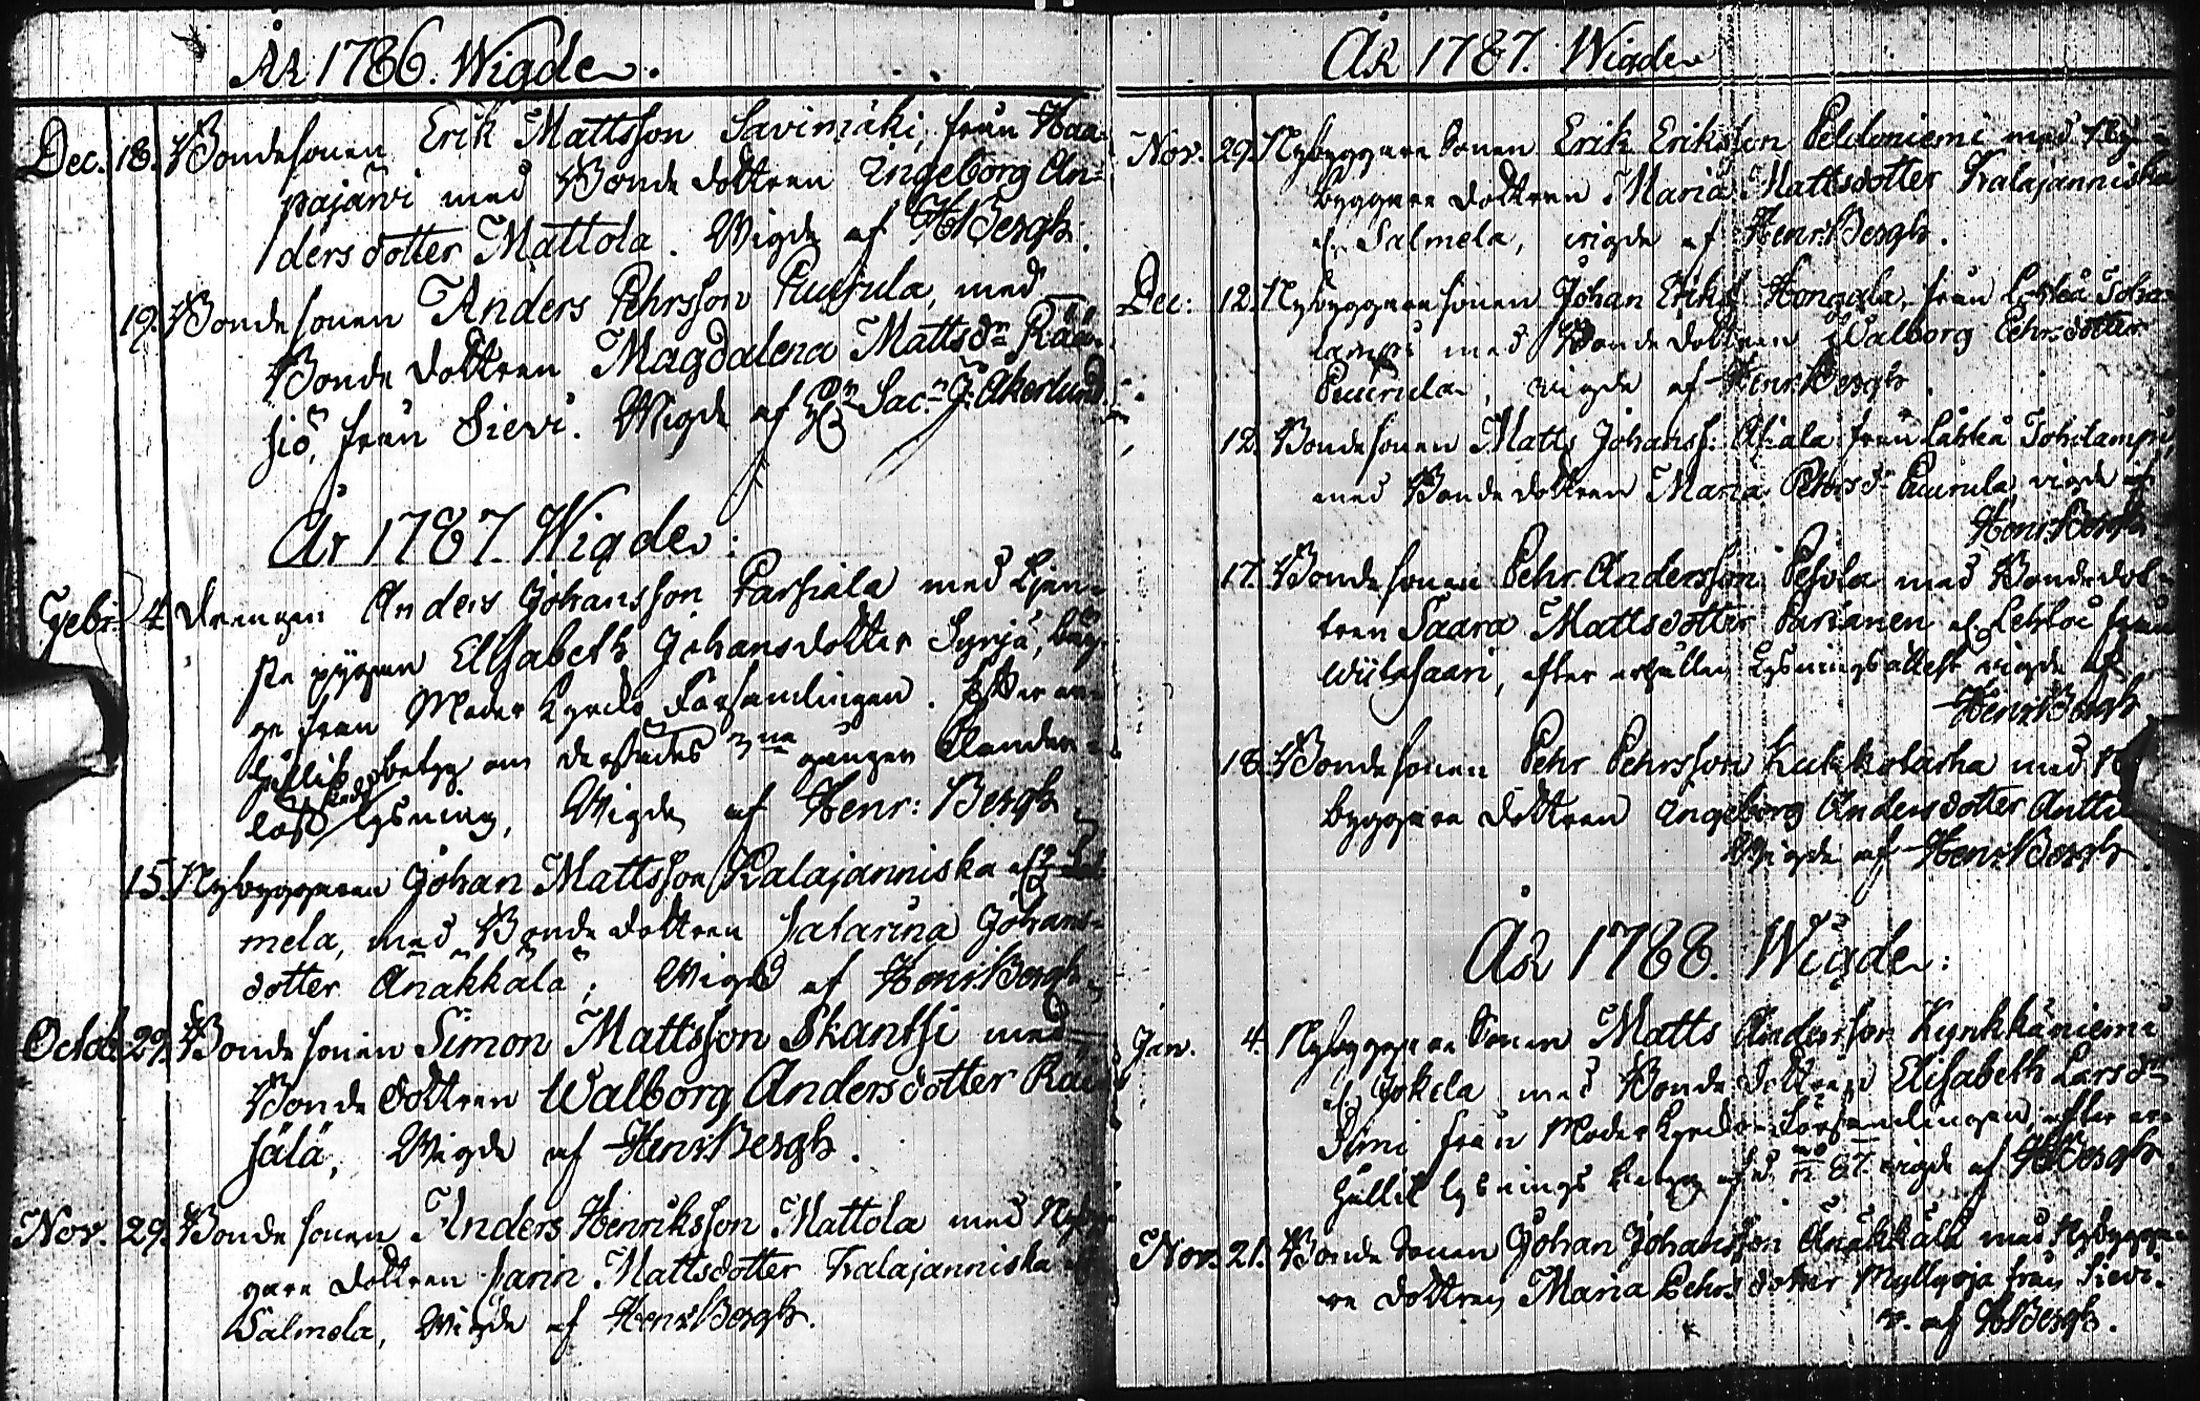 År 1786. Wigde.
Dec. 18. Bondesonen Erik Mattsson Savimäki, från Haa-
pajärvi med Bonde dottren Ingeborg An-
dersdotter Mattola. Wigde af HBergh.
19. Bondesonen Anders Pehrsson Puurula, med
Bonde dottren Magdalena Mattsdr Rää-
siö, från Sievi. Wigde af Sac. J. Åkerlund
År 1787. Wigde:
Febr. 4. Drengen Anders Johansson Parsiala med Tjen-
ste pygan Elisabeth Johansdotter Syrjä, beg-
ge från Moder Kyrko Församlingen. Efter er-
hållit betyg om derstädes 3ne gånger klander-
löst skedd lysning, Wigde af Henr: Bergh
15. Nybyggaren Johan Mattsson Kalajanniska el. Sal-
mela, med Bonde dottren Catarina Johans-
dotter Änäkkälä; Wigd af Henr:Bergh
Octob. 29. Bondesonen Simon Mattsson Skantsi med
Bonde dottren Walborg Andersdotter Räi-
sälä, Wigde af Henr:Bergh.
Nov. 29. Bondesonen Anders Henriksson Mattola med Nybyg-
gare dottren Carin Mattsdotter Kalajanniska el.
Salmela, Wigde af Henr:Bergh.
År 1787. Wigde
Nov. 29. Nybyggare Sonen Erik Eriksson Peldoniemi med Ny-
byggare dottren Maria Mattsdotter Kalajanniska
el. Salmela, wigde af Henr:Bergh.
Dec: 12. Nybyggaresonen Johan Eriks. Hongala, från Lochteå Toho-
lampi med Bonde dottren Walborg Pehrsdotter
Puurula, wigde af Henr:Bergh
12. Bondesonen Matts Johanss: från Tohilampi,
med Bonde dottren Maria Pehrsdr Puurula, wigde af
Henr:Bergh
17. Bondesonen Pehr Andersson Pesola med Bonde dot-
tren Saara Mattsdotter Parianen el. Lehtoi från
Wiitasaari, efter erhållen Lysningsattest wigde af
Henr:Bergh
18. Bondesonen Pehr Pehrsson Kukkolarha med Ny-
byggare dottren Ingeborg Andersdotter Antti
Wigde af Henr:Bergh
År 1788. Wigde:
Jan. 4. Nybyggare Sonen Matts Andersson Kynkkäniemi
el. Jokela med Bonde dottren Elisabeth Larsdr
från Moder Kyrko Församlingen, efter er-
hållit lysnings betyg af d. 87. wigde af HBergh
Nov. 21. Bonde Sonen Johan Johansson Änäkkälä med Nybygga-
re dottren Maria Pehrsdotter Myllyoja från Sievi.
v. af HBergh.